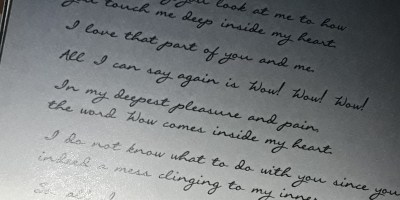 you look at me to how
you touch me deep inside my heart.
I love that part of you and me.
All I can say again is Wow! Wow! Wow!
In my deepest pleasure and pain.
the word Wow comes inside my heart.
I do not know what to do with you since you
indeed a mess clinging to my
So all I